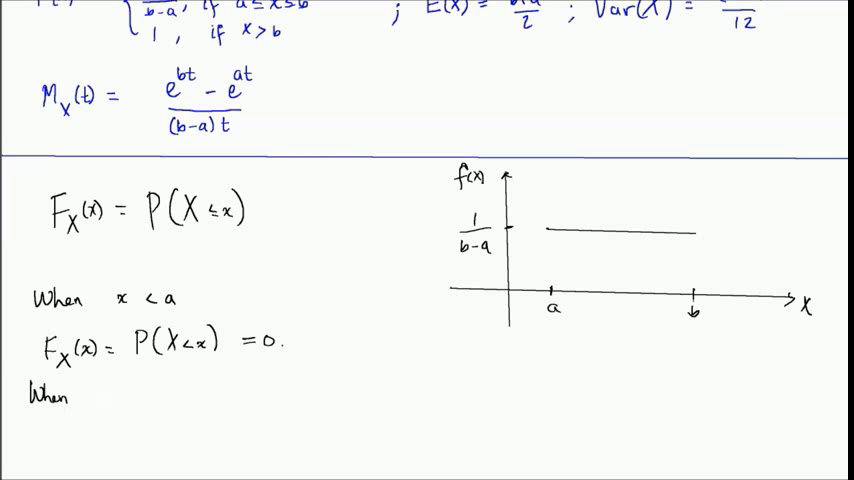 b-a , if a ≤ x ≤ b
1 , if x > b
; E(X) = ; Var(X) =
2
12
M_X(t) = e^{bt} - e^{at}
(b-a)t
F_X(x) = P(X ≤ x)
When x < a
F_X(x) = P(X < x) = 0.
When
f(x)
1
b-a
a
b
X